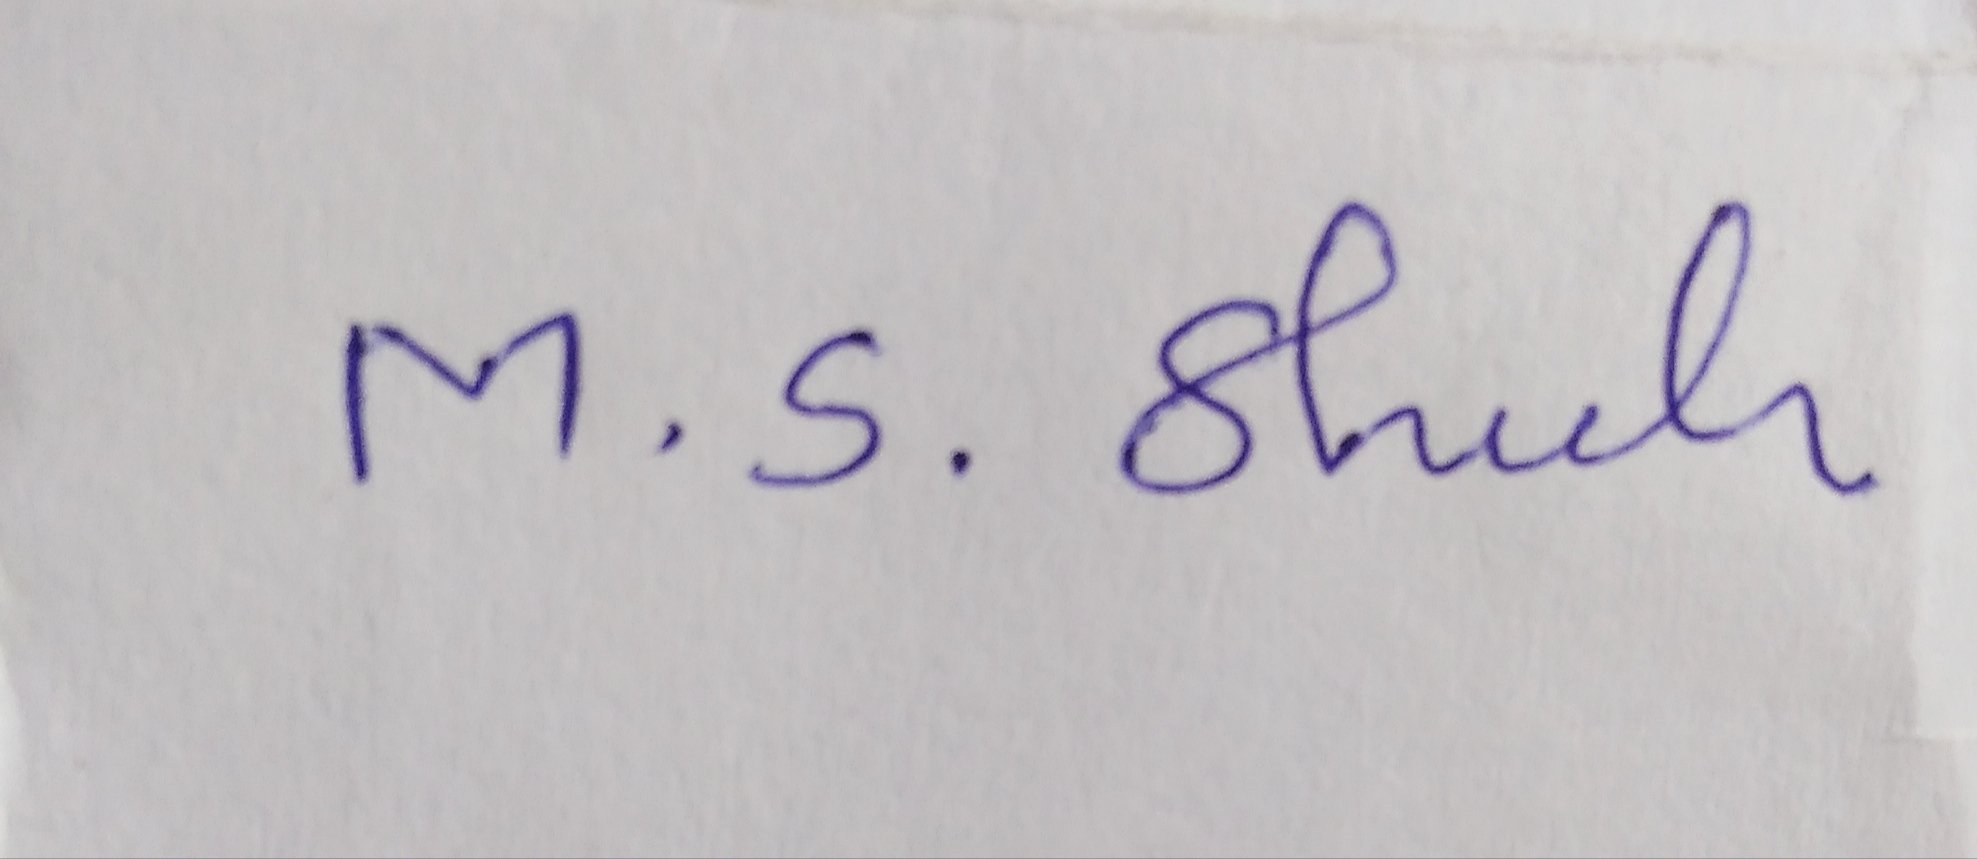 M. S. Shah